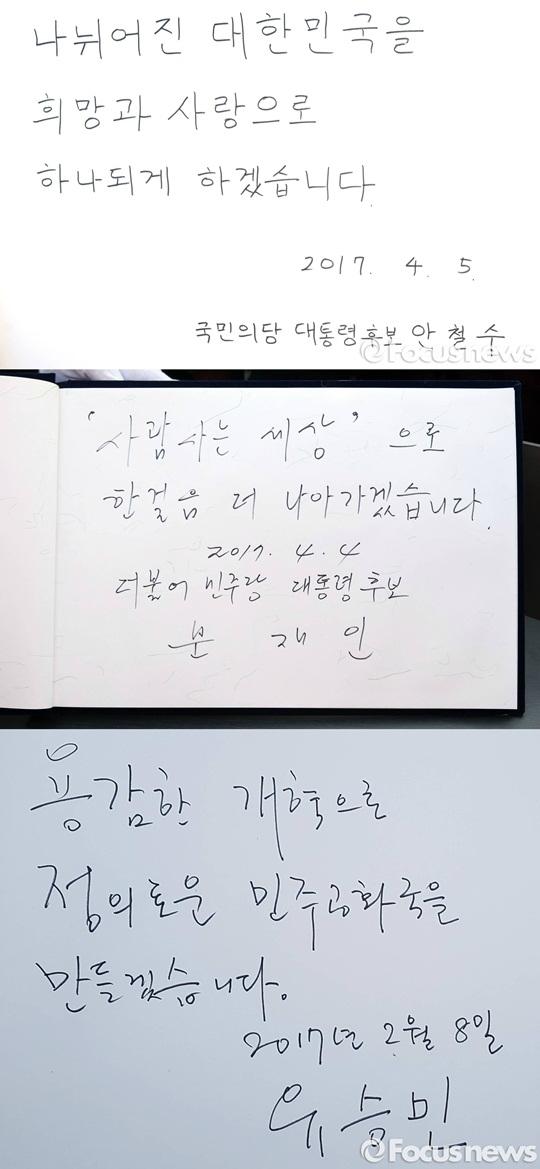 나뉘어진 대한민국을
희망과 사랑으로
하나되게 하겠습니다.
2017. 4. 5.
국민의당 대통령후보 안 철 수
©Focusnews
'사람사는 세상'으로
한걸음 더 나아가겠습니다.
2017. 4. 4
더불어 민주당 대통령후보
문 재 인
용감한 개혁으로
정의로운 민주공화국을
만들겠습니다.
2017년 2월 8일
유승민
©Focusnews